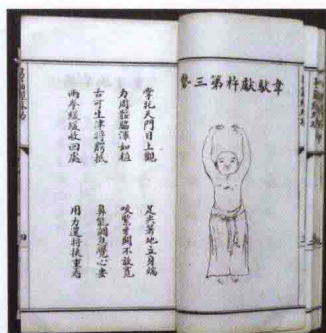 韋馱獻杵第三勢
掌托天門目上觀 足尖著地立身端
力周骽脇渾如植 咬緊牙關不放寬
舌可生津將腭抵 鼻能調息覺心安
兩拳緩緩收回處 用力還將挾重看